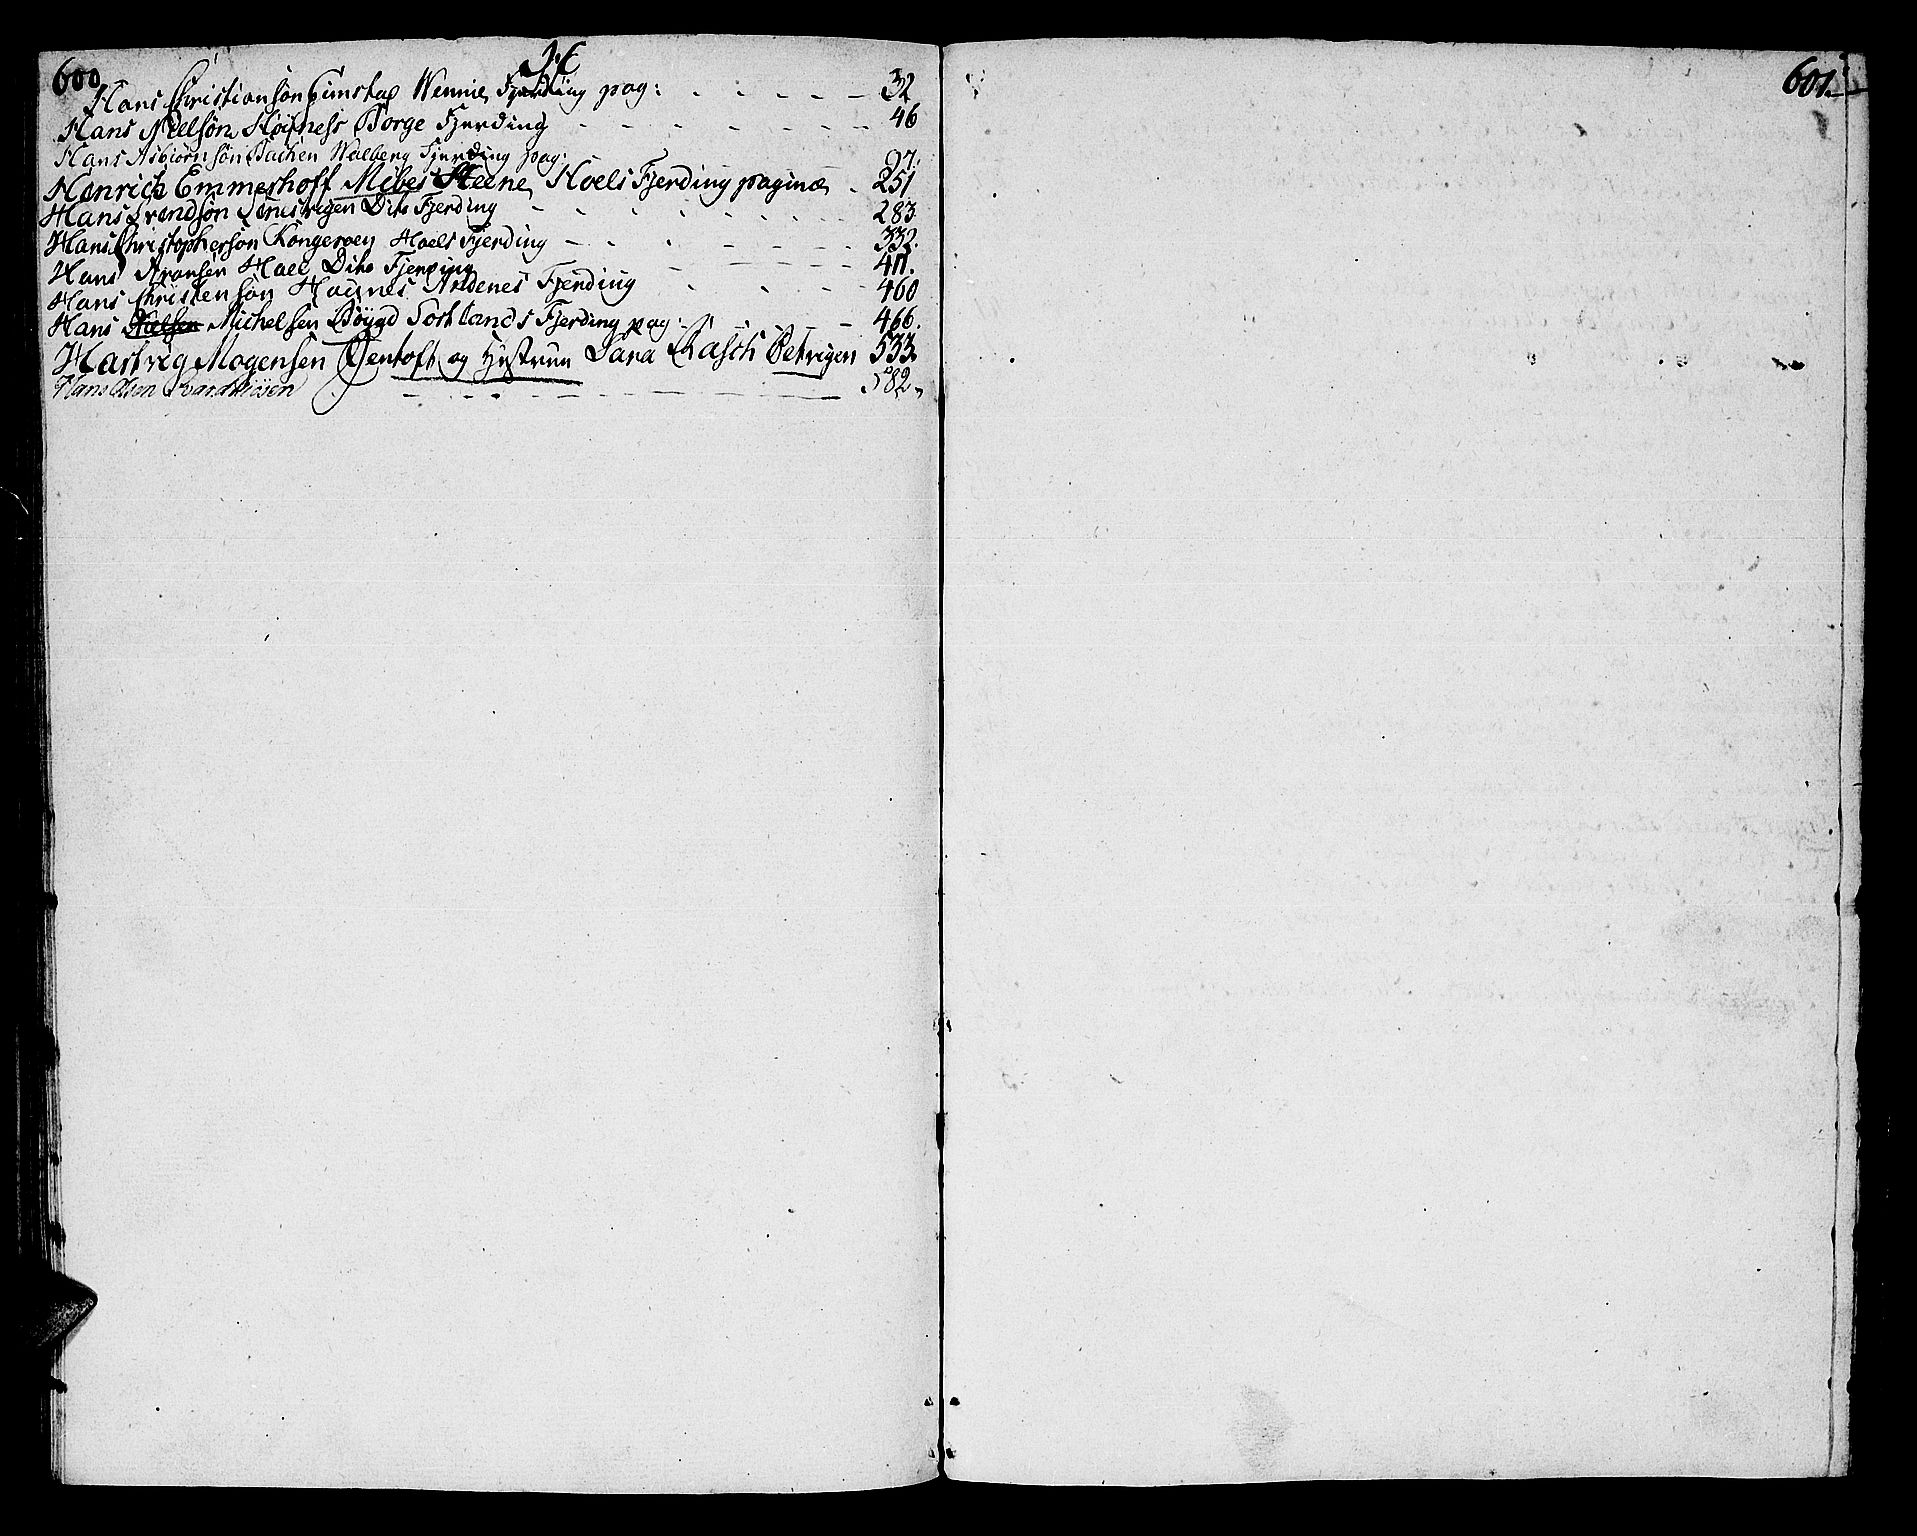 600
H
Hans Christiansön Gimstad Wennie Fjerding pag: 32
Hans Nielsön Höÿness Borge Fjerding 46
Hans Asbiørnsön Backen Walberg Fjerding pag: 97.
Henrich Emmerhoff Melboe Steene, Hoels Fjerding paginæ 251
Hans Trondsön Dito Fjerding 283
Hans Christophersön Kongsroen Hoels Fjerding 332.
Hans Aronsen Hoel Dito Fjerding 411.
Hans Christensön Haugnes Andenes Fjerding 460
Hans Michelsen Böÿgd Sortlands Fjerding pag: 466.
Hartvig Mogensen Jentoft og Hustrue Sara Rasch Betvigen 533
Hans Olsen 582
601.